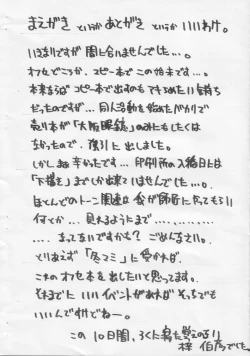 まえがき というか あとがき というか いいわけ。
いきなりですが 間に合いませんでした…。
オフセどころか、コピー本で この始末です…。
本来ならば コピー本で出すのも やめたい気持ち
だったのですが…同人活動を始めたばかりで
売り本が「大阪眼鏡」のみにもしたくは
なかったので、強引に 出しました。
しかし 辛かったです…印刷所の入稿日には
「下描き」までしか出来ていませんでした…。
ほとんどのトーン関連は 食が師匠に 貼ってもらい
何とか…見れるようにまで……………
……なってないですかね？ごめんなさい。
とりあえず「冬コミ」に 受かれば、
これの オフセ本を 出したいと思ってます。
それまでに いいイベントがあれば そっちでも
いいんですけどねー。
この10日間、ろくに寝た覚えのない
梓 伯彦でした。